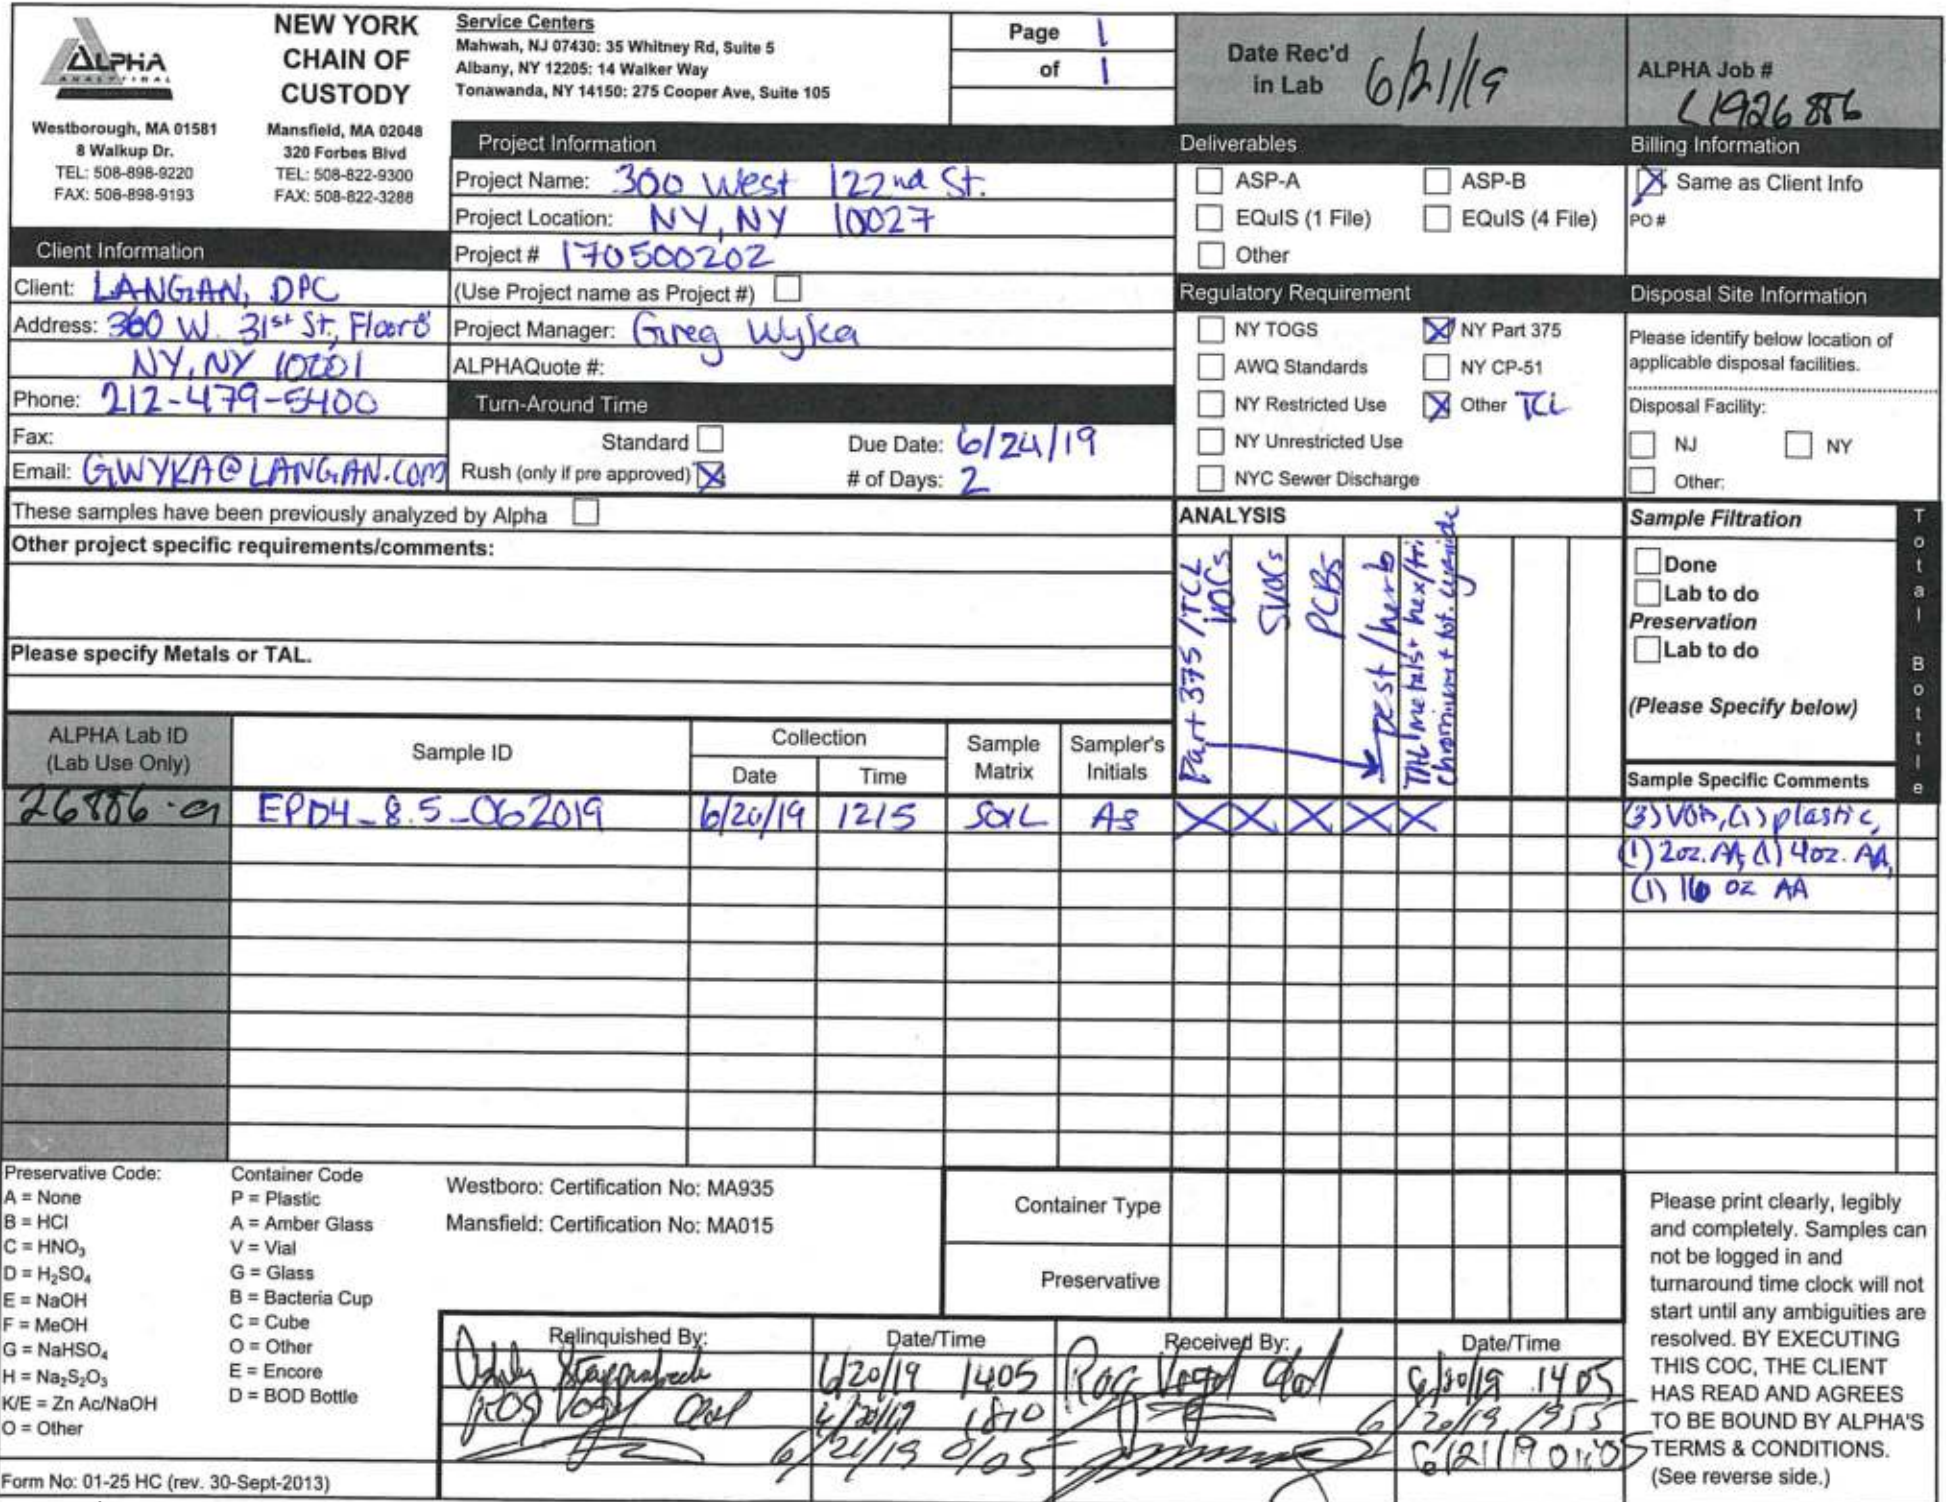 ALPHA
ANALYTICAL
NEW YORK
CHAIN OF
CUSTODY
Westborough, MA 01581
8 Walkup Dr.
TEL: 508-898-9220
FAX: 508-898-9193
Mansfield, MA 02048
320 Forbes Blvd
TEL: 508-822-9300
FAX: 508-822-3288
Service Centers
Mahwah, NJ 07430: 35 Whitney Rd, Suite 5
Albany, NY 12205: 14 Walker Way
Tonawanda, NY 14150: 275 Cooper Ave, Suite 105
Page 1
of 1
Date Rec'd
in Lab 6/21/19
ALPHA Job #
L1926886
Project Information
Project Name: 300 West 122nd St.
Project Location: NY, NY 10027
Project # 170500202
(Use Project name as Project #)
Project Manager: Greg Wyka
ALPHAQuote #:
Client Information
Client: LANGAN, DPC
Address: 360 W. 31st St, Floor 8
NY, NY 10001
Phone: 212-479-5400
Fax:
Email: GWYKA@LANGAN.COM
Turn-Around Time
Standard
Due Date: 6/24/19
Rush (only if pre approved)
# of Days: 2
Deliverables
ASP-A
ASP-B
EQuIS (1 File)
EQuIS (4 File)
Other
Billing Information
Same as Client Info
PO #
Regulatory Requirement
NY TOGS
NY Part 375
AWQ Standards
NY CP-51
NY Restricted Use
Other TCL
NY Unrestricted Use
NYC Sewer Discharge
Disposal Site Information
Please identify below location of
applicable disposal facilities.
Disposal Facility:
NJ
NY
Other:
These samples have been previously analyzed by Alpha
Other project specific requirements/comments:
Please specify Metals or TAL.
ANALYSIS
Part 375 /TCL
VOCs
SVOCs
PCBs
pest/herb
TAL metals + hex/tri
chromium + tot. cyanide
Sample Filtration
Done
Lab to do
Preservation
Lab to do
(Please Specify below)
Total Bottle
ALPHA Lab ID
(Lab Use Only)
Sample ID
Collection
Date
Time
Sample
Matrix
Sampler's
Initials
Sample Specific Comments
26886-01 EPD4_8.5_062019 6/20/19 1215 SOIL AS X X X X X (3) VOA, (1) plastic,
(1) 2oz. AA, (1) 4oz. AA,
(1) 16 oz AA
Preservative Code:
A = None
B = HCl
C = HNO₃
D = H₂SO₄
E = NaOH
F = MeOH
G = NaHSO₄
H = Na₂S₂O₃
K/E = Zn Ac/NaOH
O = Other
Container Code
P = Plastic
A = Amber Glass
V = Vial
G = Glass
B = Bacteria Cup
C = Cube
O = Other
E = Encore
D = BOD Bottle
Westboro: Certification No: MA935
Mansfield: Certification No: MA015
Container Type
Preservative
Relinquished By:
Date/Time
Received By:
Date/Time
6/20/19 1405
6/20/19 1405
6/20/19 1810
6/20/19 1955
6/21/19 0105
6/21/19 0105
Please print clearly, legibly
and completely. Samples can
not be logged in and
turnaround time clock will not
start until any ambiguities are
resolved. BY EXECUTING
THIS COC, THE CLIENT
HAS READ AND AGREES
TO BE BOUND BY ALPHA'S
TERMS & CONDITIONS.
(See reverse side.)
Form No: 01-25 HC (rev. 30-Sept-2013)